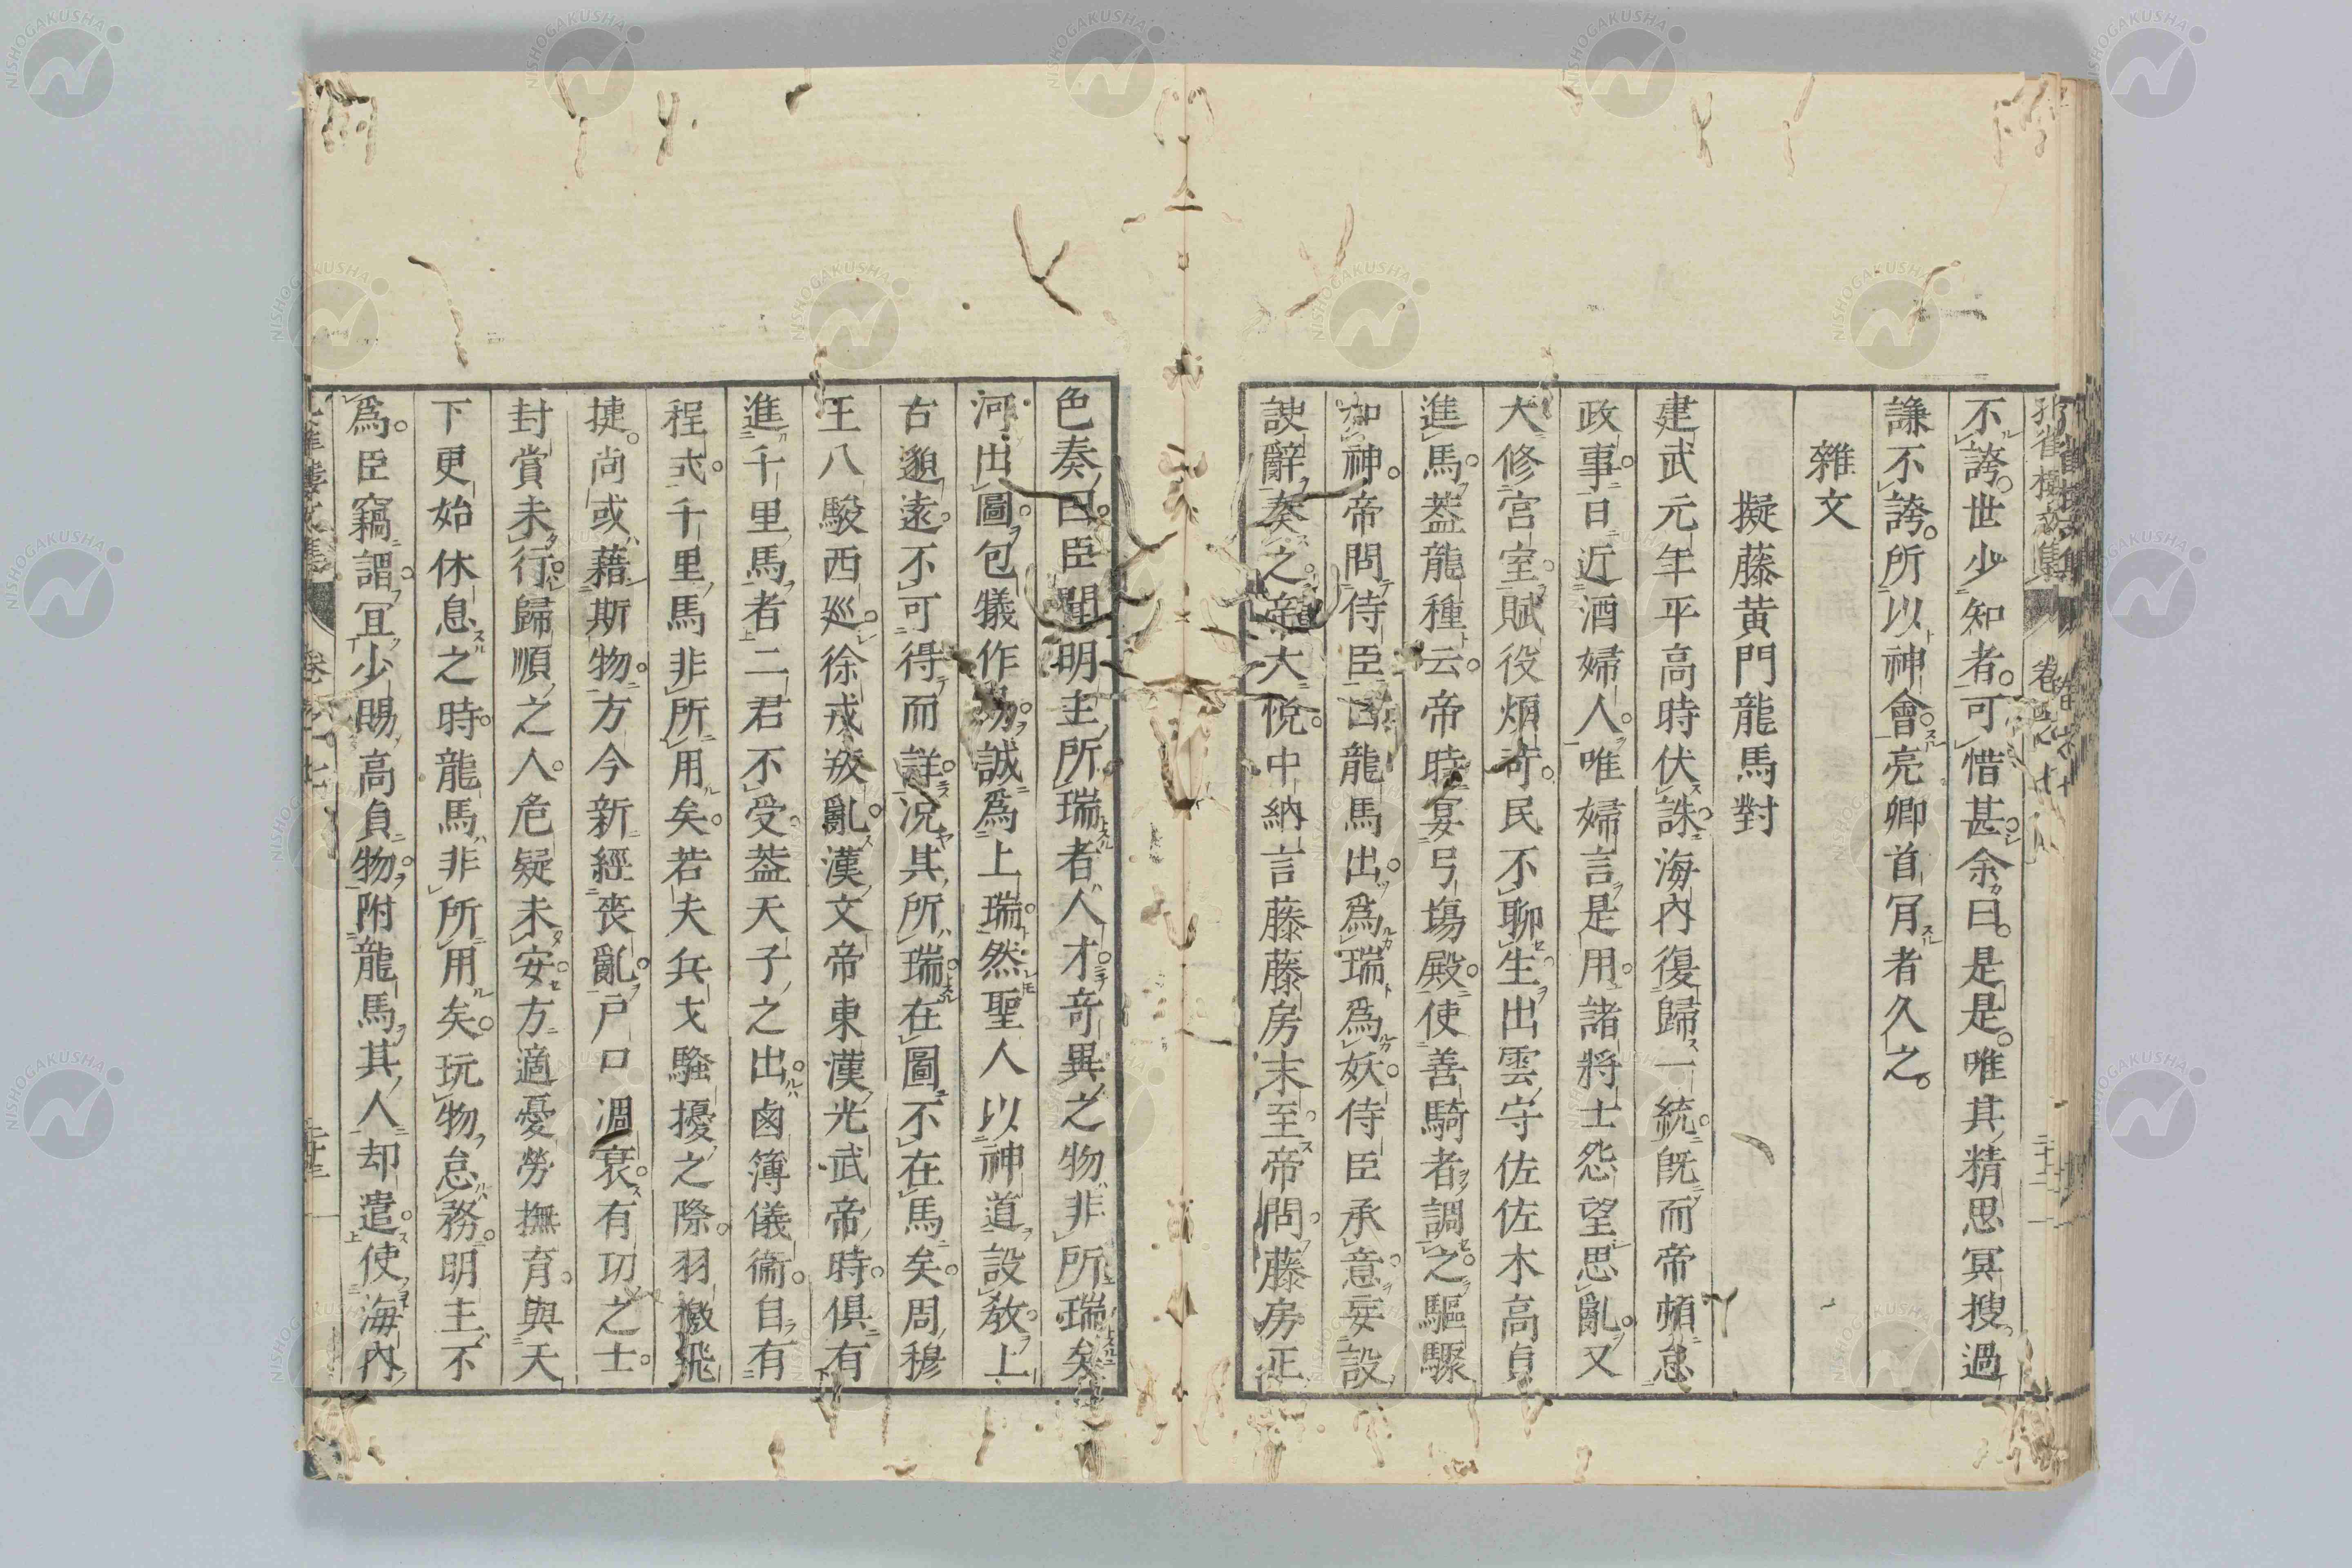 不誇。世少知者。可惜甚。余曰。是是。唯其精思冥搜過
謙不誇。所以神會。亮卿首肎者久之。
雜文
擬藤黄門龍馬對
建武元年平高時伏誅。海內復歸一統。既而帝頗怠
政事。日近酒婦人。唯婦言是用。諸將士怨望思亂。又
大修宮室。賦役煩苛。民不聊生。出雲守佐佐木高貞
進馬。葢龍種云。帝時宴弓塲殿。使善騎者調之。驅驟
如神。帝問侍臣曰龍馬出。爲瑞爲妖。侍臣承意妄設
諛辭奏之。帝大悅。中納言藤藤房末至。帝問。藤房正
色奏曰。臣聞明主所瑞者。人才。奇異之物。非所瑞矣
河出圖。包犧作易。誠爲上瑞。然聖人以神道設敎。上
古邈遠。不可得而詳。况其所瑞。在圖不在馬矣。周穆
王八駿西廵。徐戎叛亂。漢文帝東漢光武帝時。俱有
進千里馬者。二君不受。葢天子之出。鹵簿儀衞。自有
程式。千里馬非所用矣。若夫兵戈騷擾之際。羽檄飛
捷。尚或藉斯物。方今新經喪亂。戸口凋衰。有功之士。
封賞未行。歸順之人。危疑未安。方適憂勞撫育。與天
下更始休息之時。龍馬非所用矣。玩物怠務。明主不
爲。臣竊謂。宜少賜高貞物。附龍馬其人却遣。使海內
孔雀樓文集
卷之七
二十二